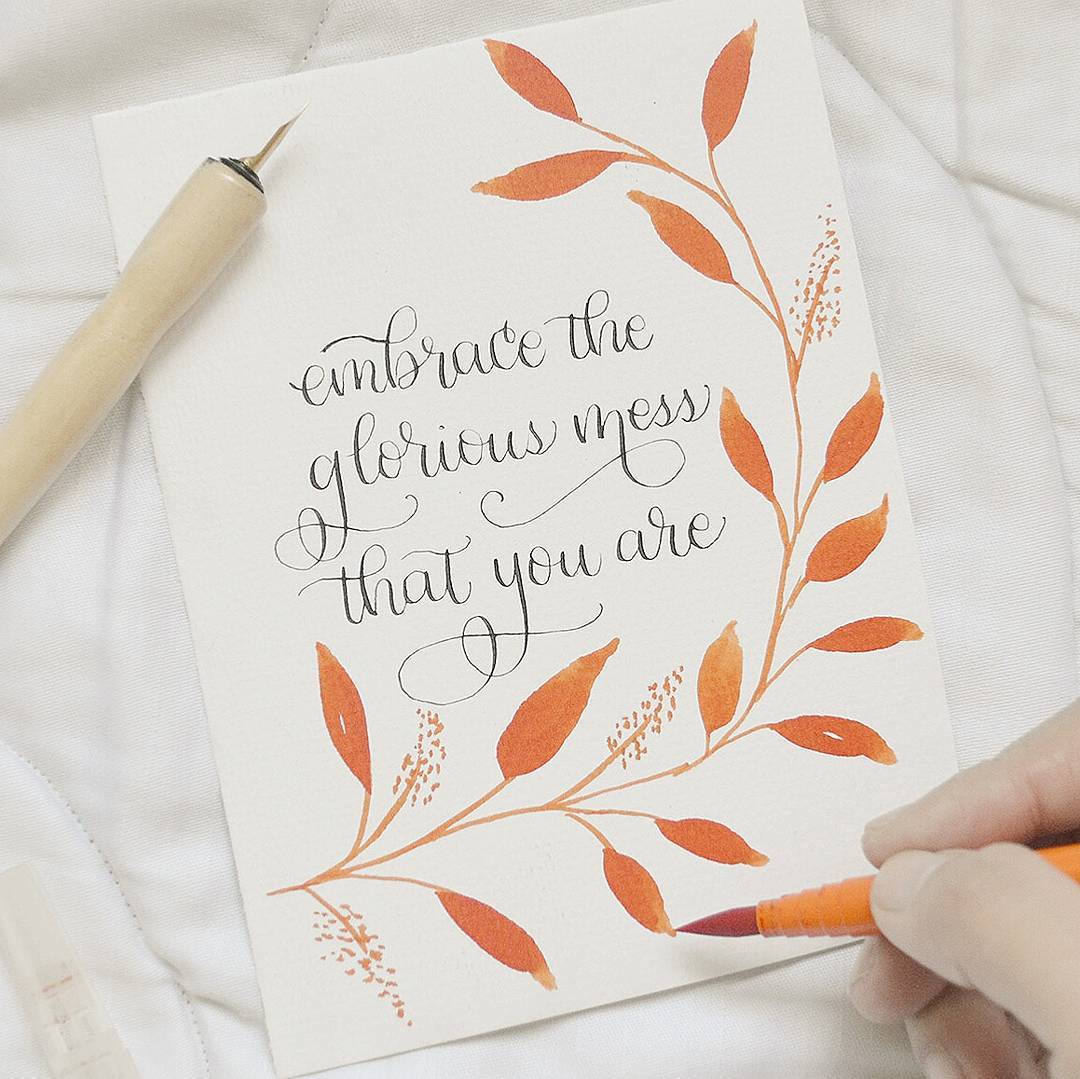 embrace the
glorious mess
that you are